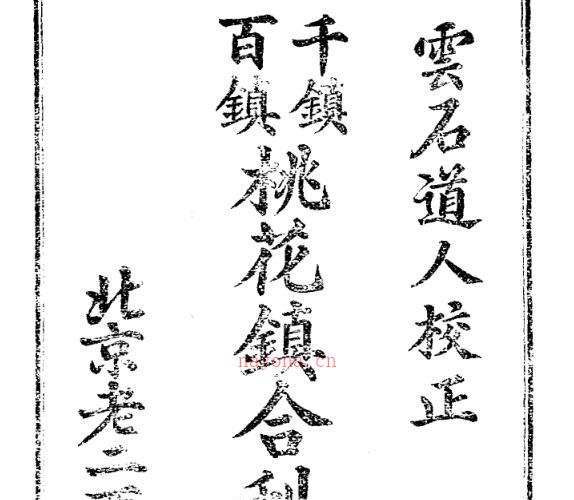 雲石道人校正
千鎮
百鎮
桃花鎮合
北京老二
nayona.cn